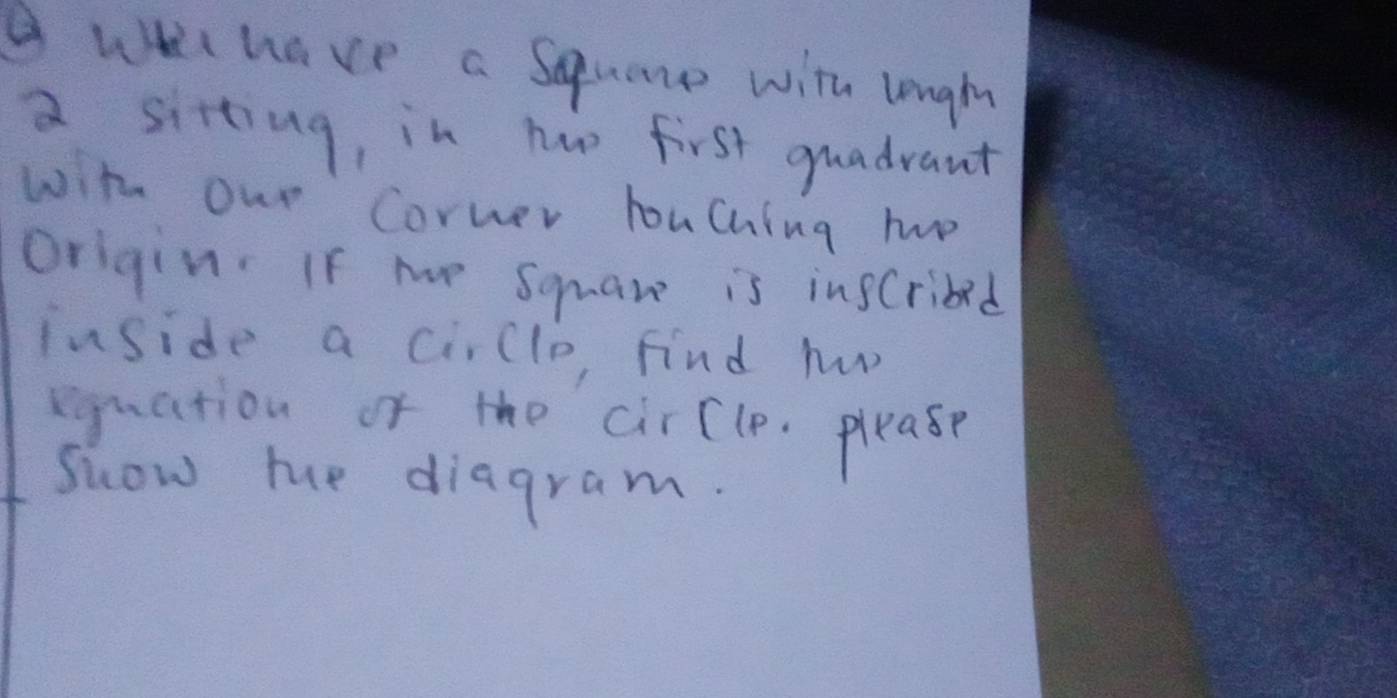 Q We have a Square with length
2 sitting, in the first quadrant
with one Corner touching the
Origin. If the square is inscribed
inside a circle, find the
equation of the circle. please
Show the diagram.